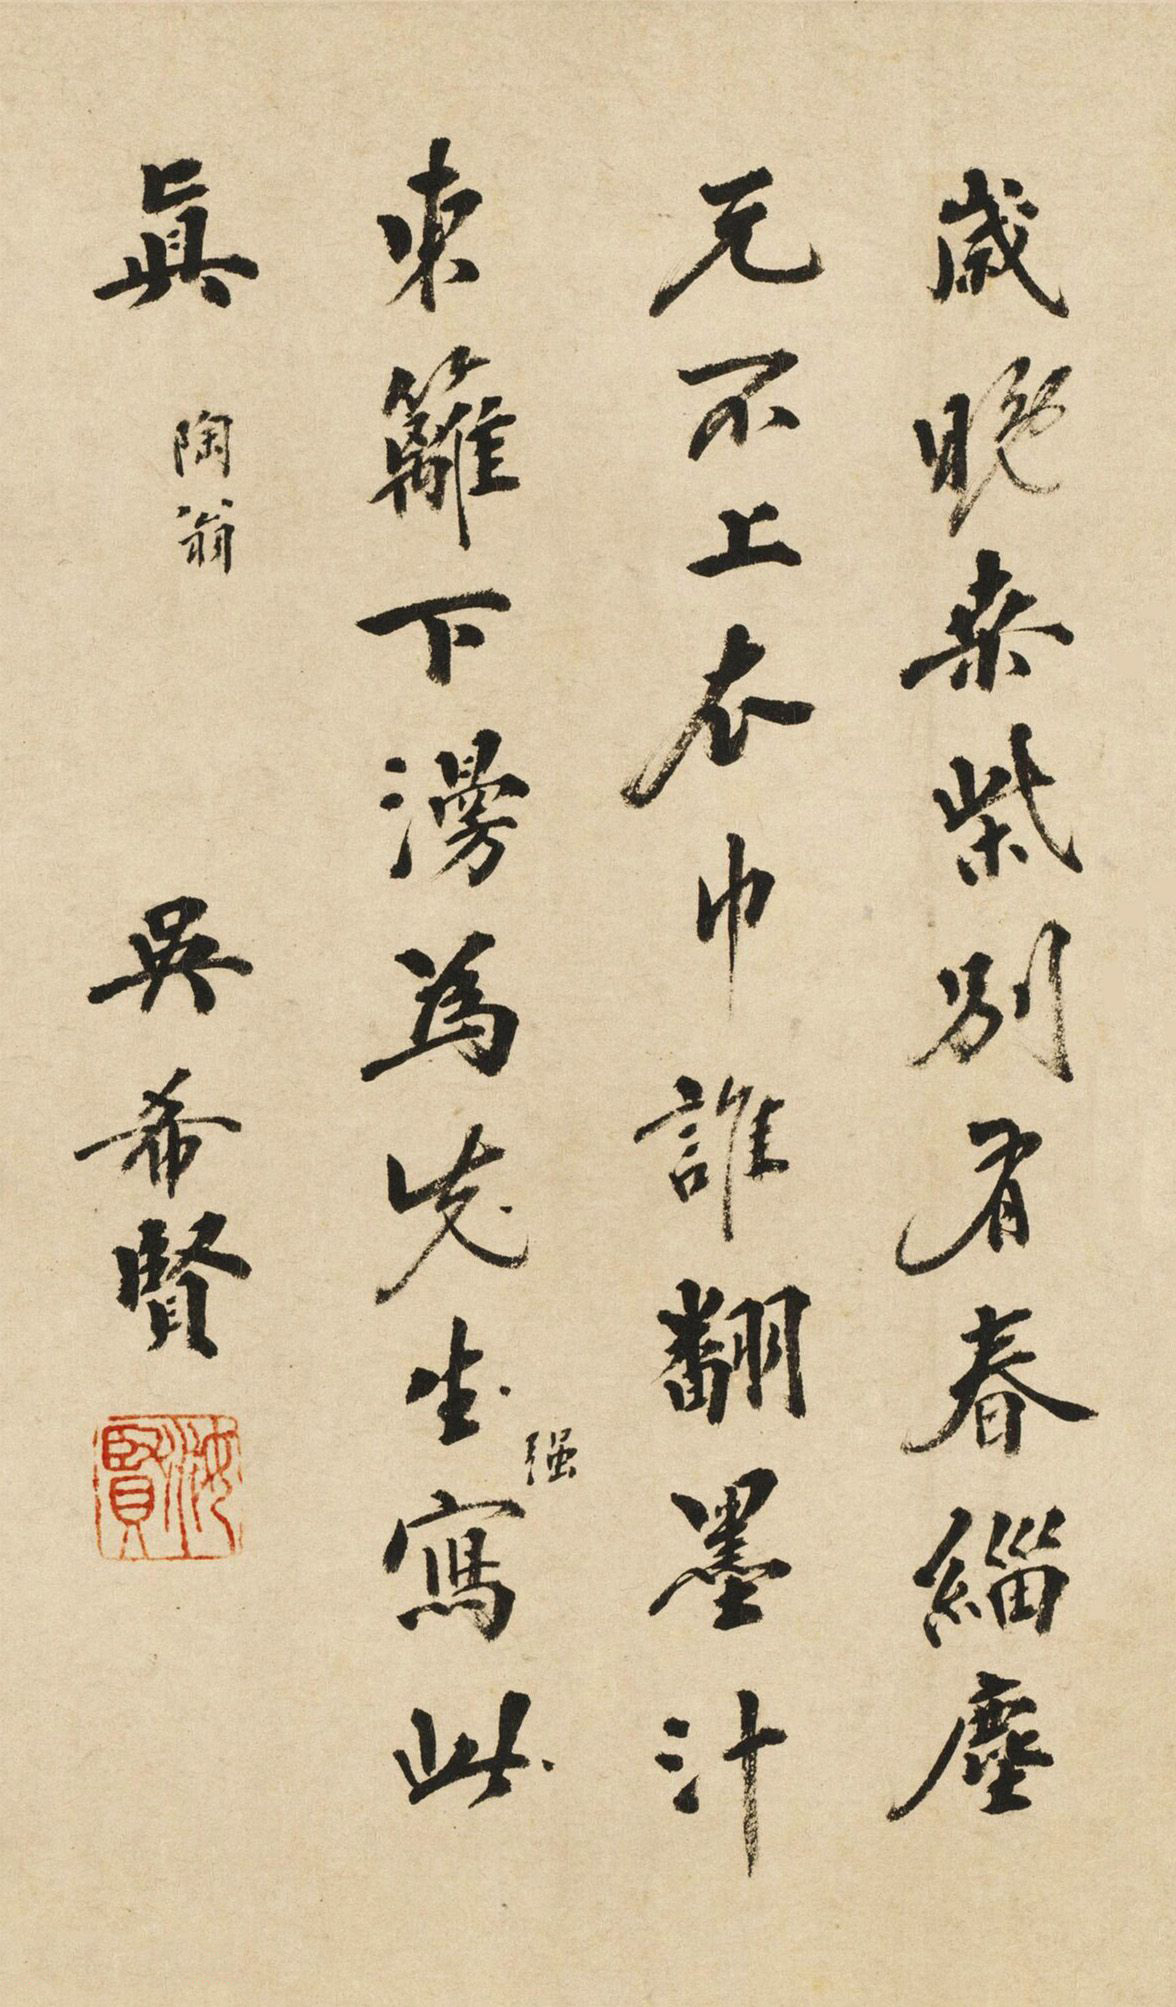 歲晚柴桑別有春緇塵
元不上衣巾誰翻墨汁
東籬下漫為先生寫此
强
真 陶翁
吳希賢
汝賢